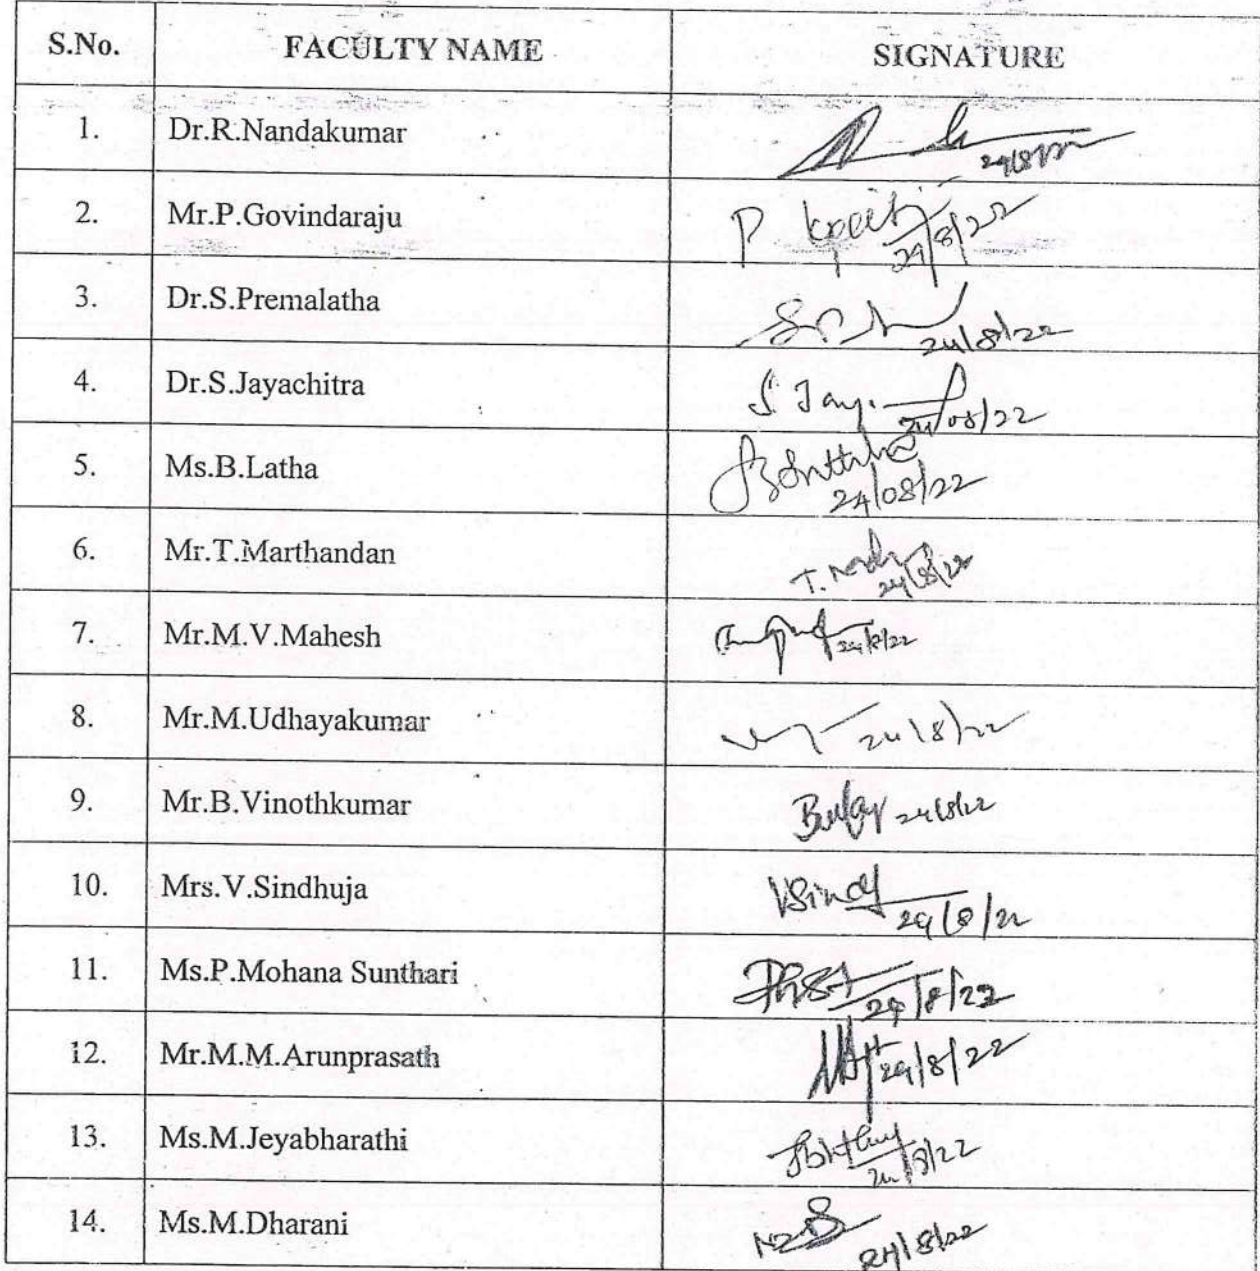 S.No. FACULTY NAME SIGNATURE
1. Dr.R.Nandakumar 24/8/22
2. Mr.P.Govindaraju P 24/8/22
3. Dr.S.Premalatha 24/8/22
4. Dr.S.Jayachitra S Jay. 24/08/22
5. Ms.B.Latha 24/08/22
6. Mr.T.Marthandan T. 24/8/22
7. Mr.M.V.Mahesh 24/8/22
8. Mr.M.Udhayakumar 24/8/22
9. Mr.B.Vinothkumar 24/8/22
10. Mrs.V.Sindhuja 24/8/22
11. Ms.P.Mohana Sunthari 24/8/22
12. Mr.M.M.Arunprasath 24/8/22
13. Ms.M.Jeyabharathi 24/8/22
14. Ms.M.Dharani 24/8/22